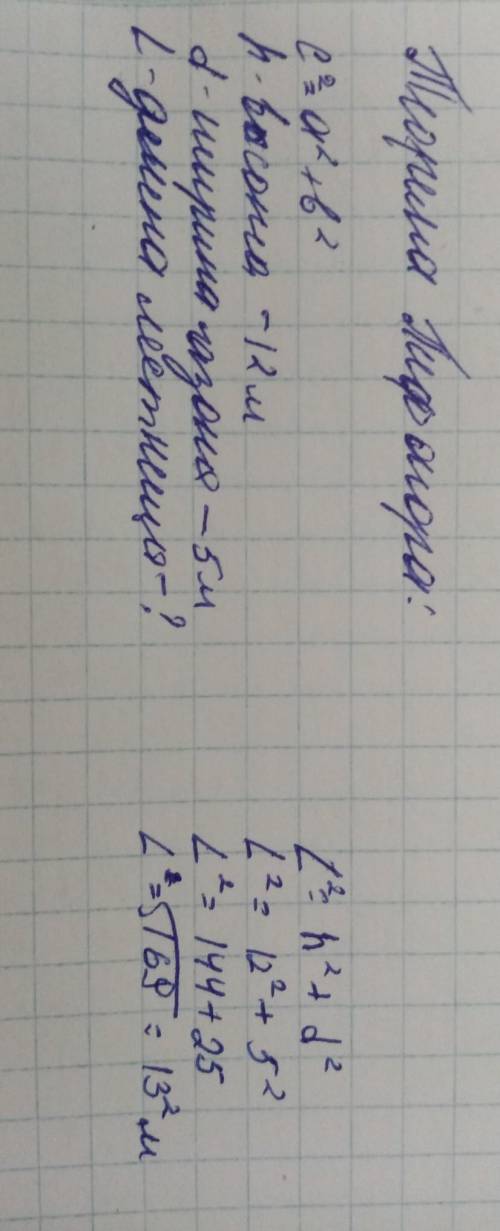 Теорема Пифагора:
c² = a² + b²
h - высота - 12 м
d - ширина газона - 5 м
L - длина лестницы - ?
L² = h² + d²
L² = 12² + 5²
L² = 144 + 25
L² = √169 = 13² м